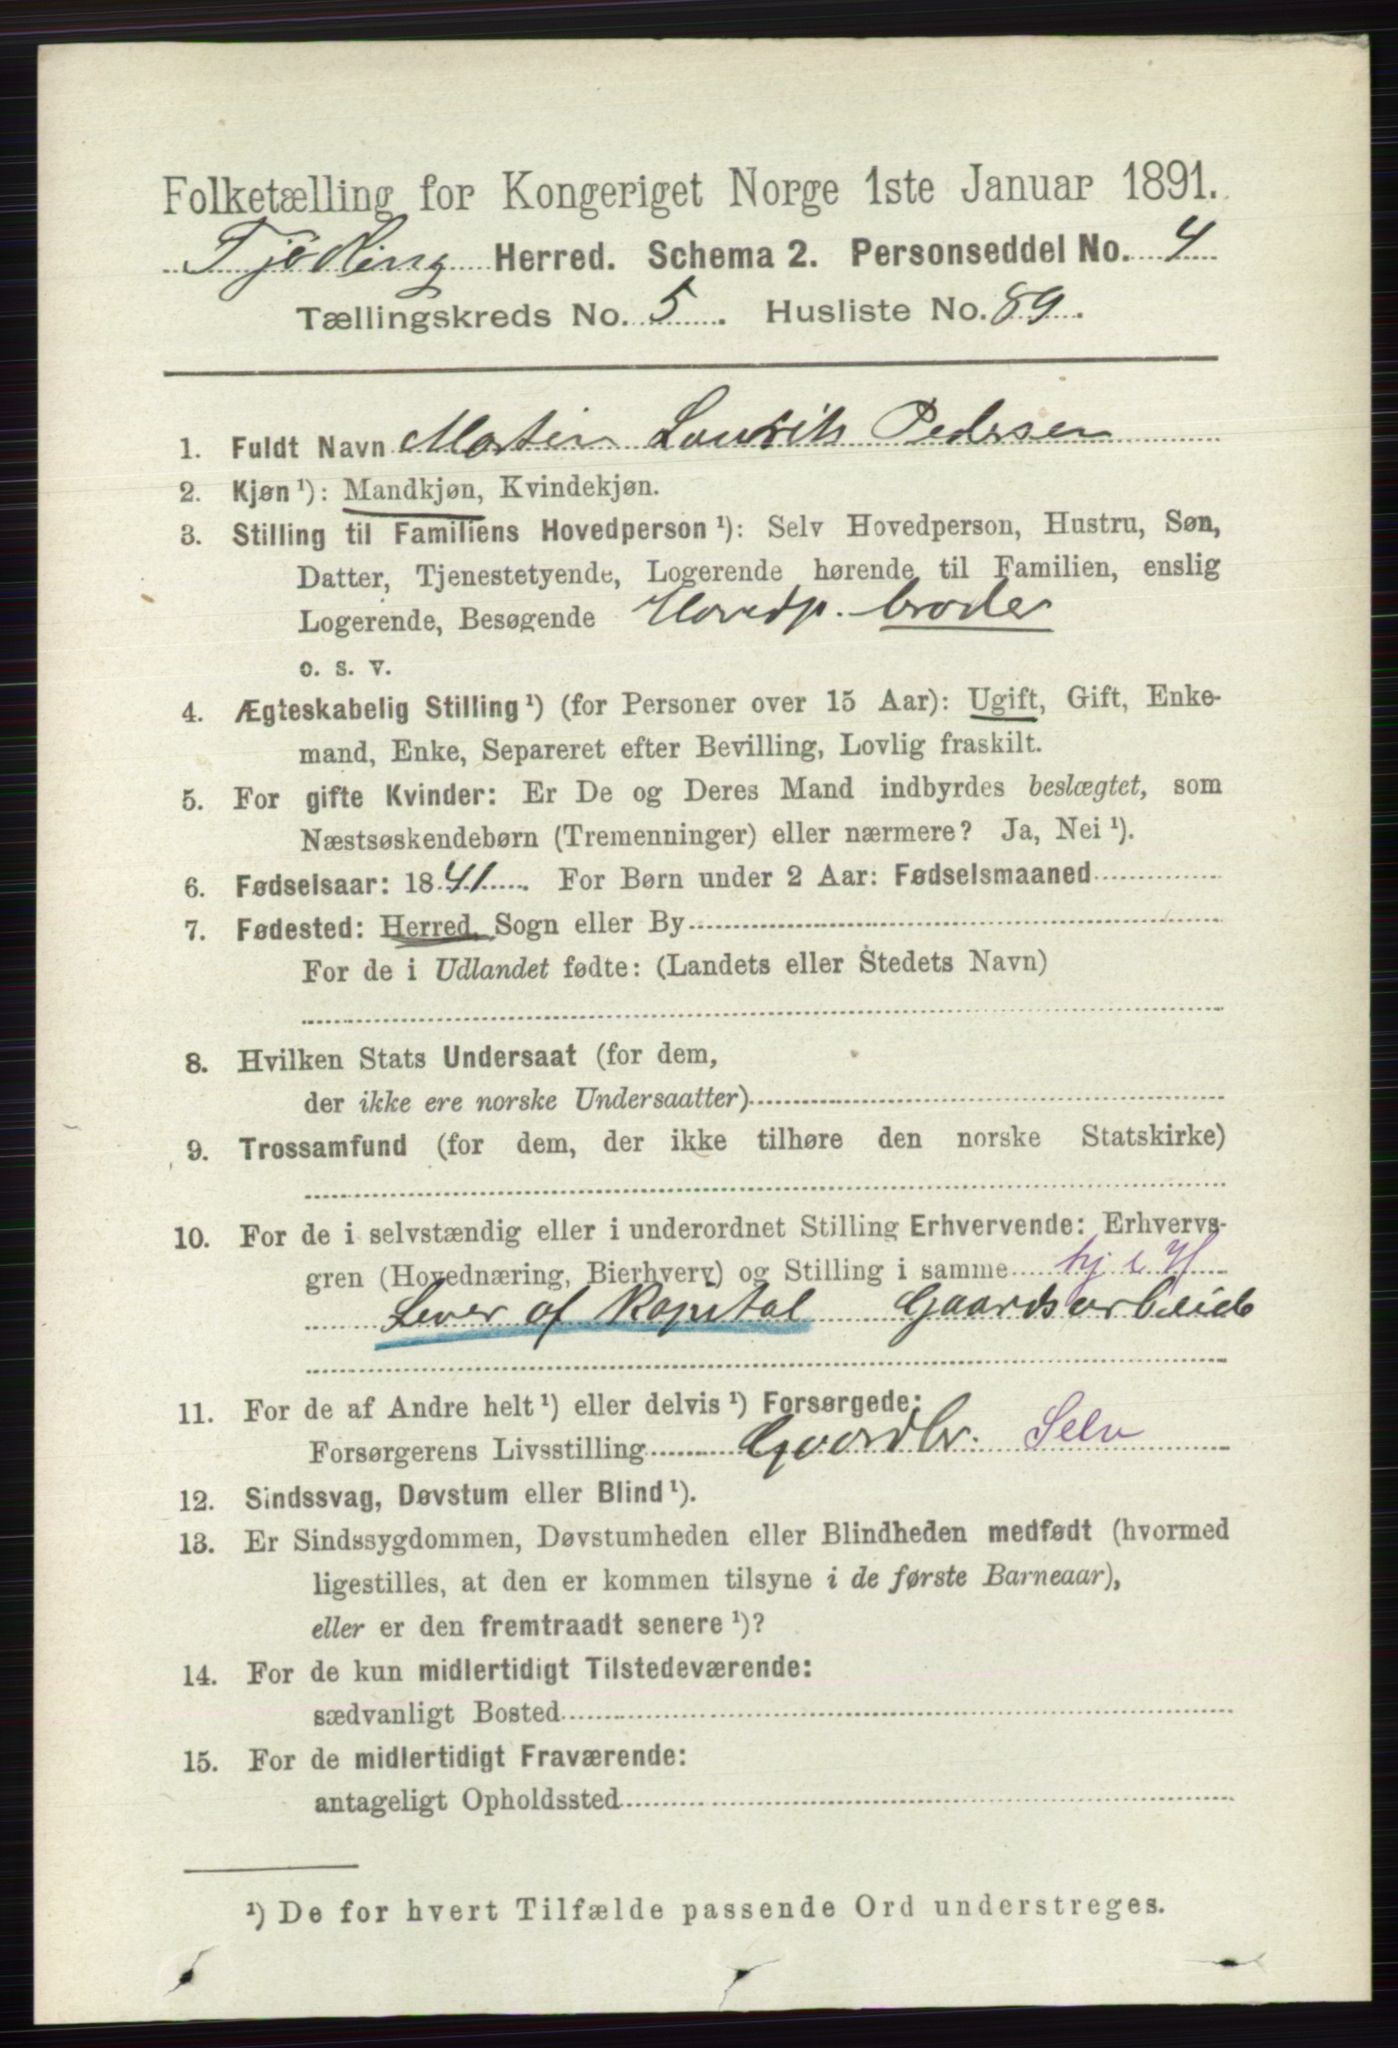 Folketælling for Kongeriget Norge 1ste Januar 1891.
Tjølling Herred. Schema 2. Personseddel No. 4
Tællingskreds No. 5. Husliste No. 89.
1. Fuldt Navn Martin Laurits Pedersen
2. Kjøn ¹): Mandkjøn, Kvindekjøn.
3. Stilling til Familiens Hovedperson ¹): Selv Hovedperson, Hustru, Søn,
Datter, Tjenestetyende, Logerende hørende til Familien, enslig
Logerende, Besøgende Hovedp. broder
o. s. v.
4. Ægteskabelig Stilling ¹) (for Personer over 15 Aar): Ugift, Gift, Enke-
mand, Enke, Separeret efter Bevilling, Lovlig fraskilt.
5. For gifte Kvinder: Er De og Deres Mand indbyrdes beslægtet, som
Næstsøskendebørn (Tremenninger) eller nærmere? Ja, Nei ¹).
6. Fødselsaar: 1841. For Børn under 2 Aar: Fødselsmaaned
7. Fødested: Herred, Sogn eller By
For de i Udlandet fødte: (Landets eller Stedets Navn)
8. Hvilken Stats Undersaat (for dem,
der ikke ere norske Undersaatter)
9. Trossamfund (for dem, der ikke tilhøre den norske Statskirke)
10. For de i selvstændig eller i underordnet Stilling Erhvervende: Erhvervs-
gren (Hovednæring, Bierhverv) og Stilling i samme tj i H
Lever af Kapital Gaardsarbeide
11. For de af Andre helt ¹) eller delvis ¹) Forsørgede:
Forsørgerens Livsstilling Gaardbr. Selv
12. Sindssvag, Døvstum eller Blind ¹).
13. Er Sindssygdommen, Døvstumheden eller Blindheden medfødt (hvormed
ligestilles, at den er kommen tilsyne i de første Barneaar),
eller er den fremtraadt senere ¹)?
14. For de kun midlertidigt Tilstedeværende:
sædvanligt Bosted
15. For de midlertidigt Fraværende:
antageligt Opholdssted
¹) De for hvert Tilfælde passende Ord understreges.